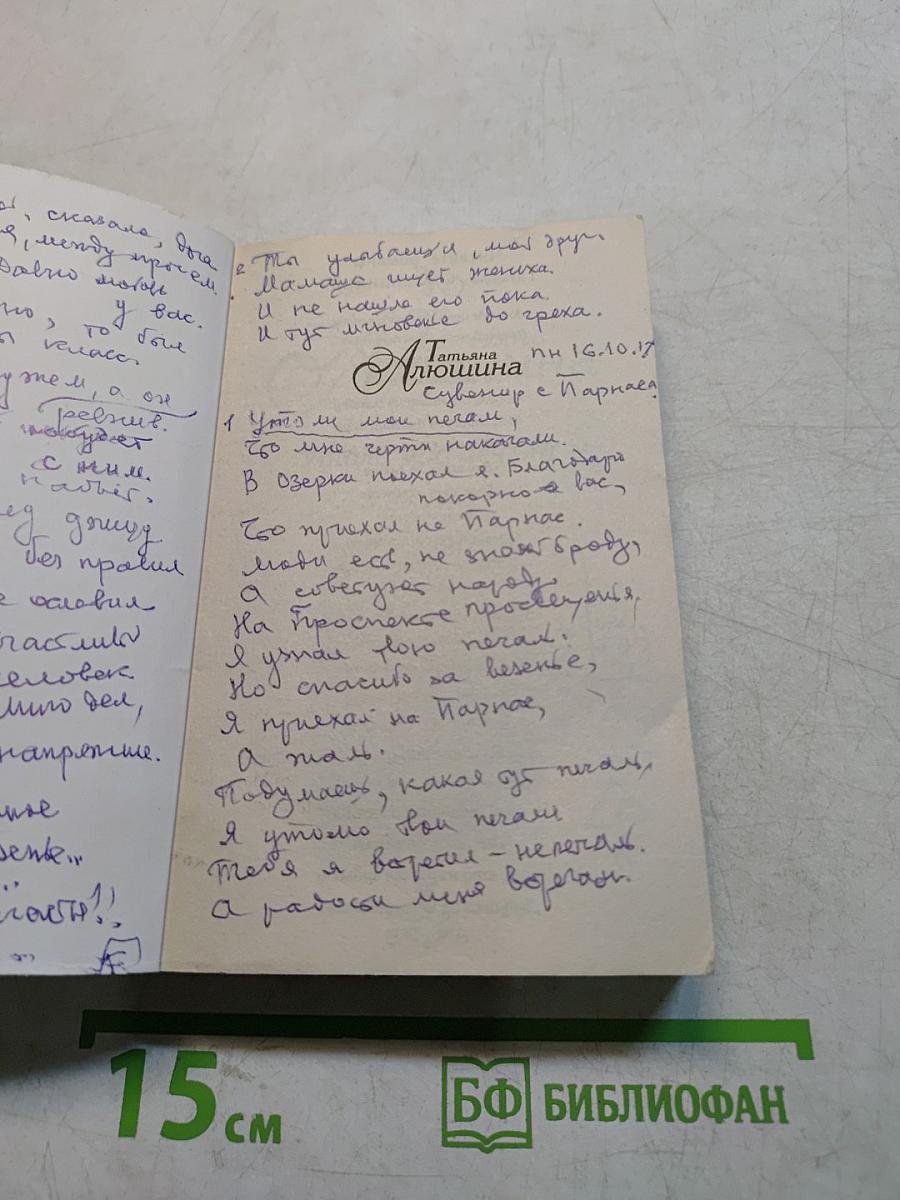 , сказала, была
я, между прочем
Давно любовь
у вас.
но, то был
класс.
мужем, а он
ревнив.
с ним.
набьёт.
без правил
счастлив
человек
Мимо дел,
напряжение.
2 Ты улыбаешься, мой друг.
Мамаша ищет жениха.
И не нашла его пока
И тут мгновенье до греха.
Татьяна
Алюшина
пн 16.10.17
Сувенир с Парнаса
1 Утоли мои печали,
Что мне черти накачали.
В Озерки поехал я. Благодарю
покорно вас,
Что приехал на Парнас.
Люди есть, не зная броду,
А советуют народу
На Проспекте просвещения,
Я узнал твою печаль.
Но спасибо за везенье,
Я приехал на Парнас,
А жаль.
Подумаешь, какая тут печаль,
Я утолю твои печали
Тебя я встретил – не печаль.
А радости меня встречали.
15 см
БФ БИБЛИОФАН